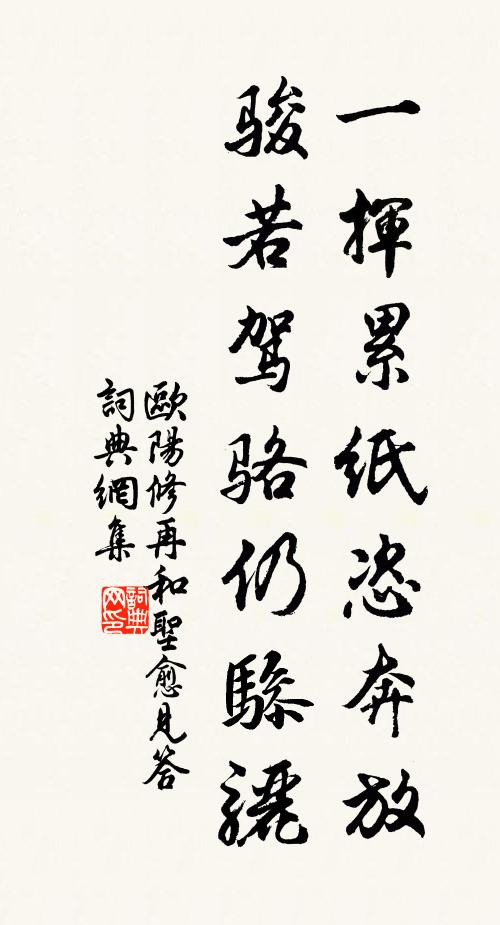 一揮累紙恣奔放
駿若駕駱仍驂驪
歐陽修再和聖愈見答
詞典網集
詞典
网印